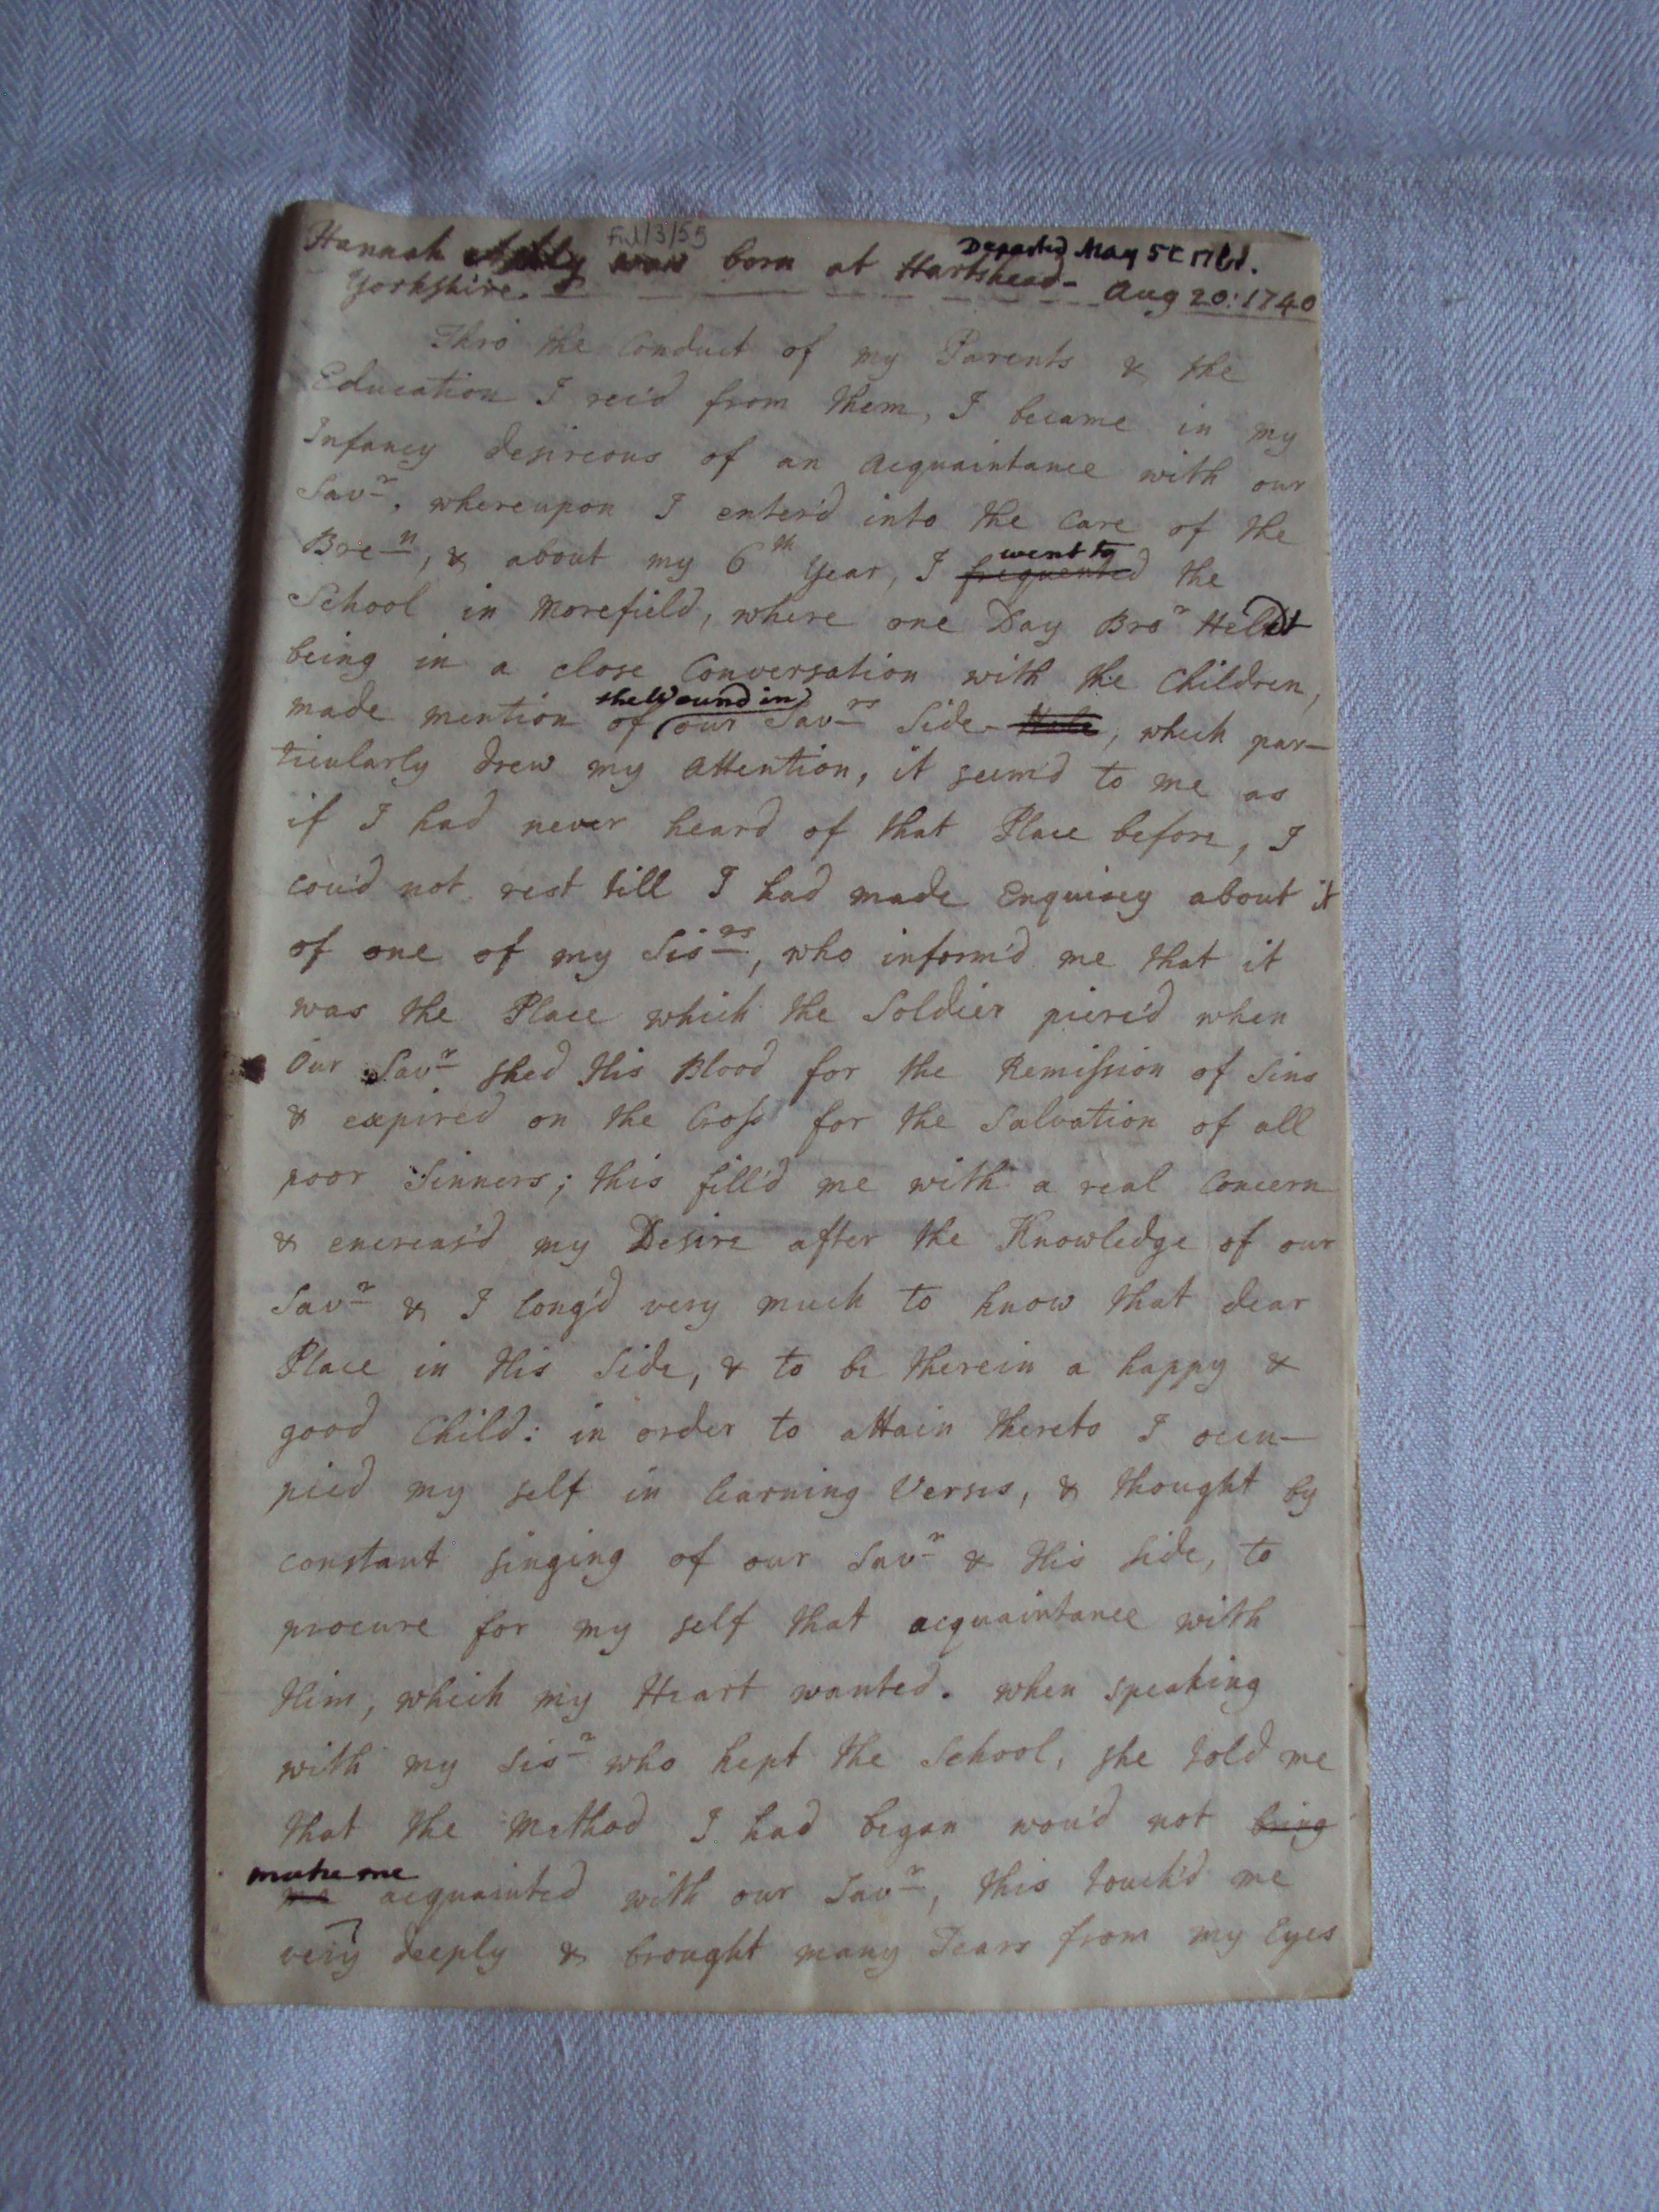 Ful/3/55
Departed May 5
Hannah was born at Hartshead-
Yorkshire. Aug 20: 1740
Thro' the Conduct of my Parents & the
Education I rec'd from them, I became in my
Infancy desireous of an Acquaintance with our
Savr. whereupon I enter'd into the Care of the
Bren, & about my 6th Year, I frequented went to the
School in Morefield, where one Day Bror Heldt
being in a close Conversation with the Children,
made mention of the Wound in our Savrs Side Hole, which par-
ticularly drew my Attention, it seem'd to me as
if I had never heard of that Place before, I
cou'd not rest till I had made Enquirey about it
of one of my Sisrs, who inform'd me that it
was the Place which the Soldier pierc'd when
Our Savr shed His Blood for the Remission of Sins
& expired on the Cross for the Salvation of all
poor Sinners; this fill'd me with a real Concern
& encreas'd my Desire after the Knowledge of our
Savr & I long'd very much to know that dear
Place in His Side, & to be therein a happy &
good Child: in order to attain thereto I occu-
pied my self in learning Verses, & thought by
constant singing of our Savr & His Side, to
procure for my self that acquaintance with
Him, which my Heart wanted. when speaking
with my Sisr who kept the School, she told me
that the Method I had began wou'd not bring
me make me acquainted with our Savr, this touch'd me
very deeply & brought many Tears from my Eyes